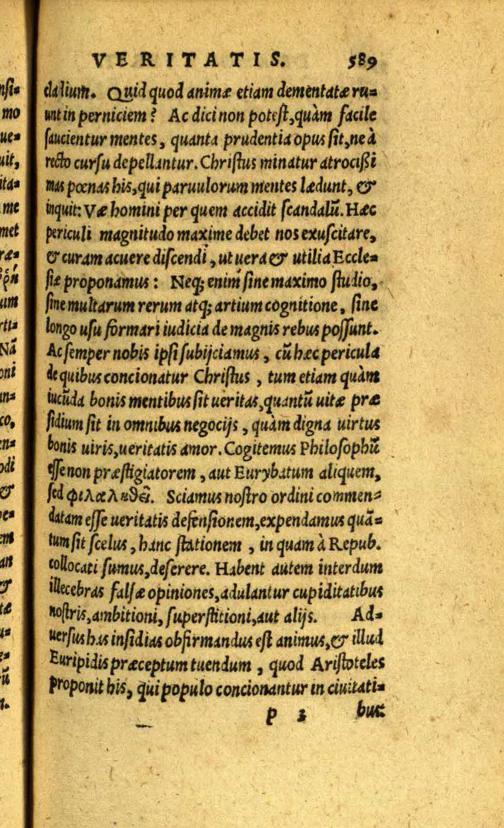 VERITATIS. 589
cladium. Quid quod animæ etiam dementatæ ru=
unt in perniciem? Ac dici non potest, quàm facile
saucientur mentes, quanta prudentia opus sit, ne à
recto cursu depellantur. Christus minatur atrocißi
mas pœnas his, qui paruulorum mentes lædunt, &
inquit: Væ homini per quem accidit scandalũ. Hæc
periculi magnitudo maxime debet nos exuscitare,
& curam acuere discendi, ut uera & utilia Eccle=
siæ proponamus: Neq; enim sine maximo studio,
sine multarum rerum atq; artium cognitione, sine
longo usu formari iudicia de magnis rebus possunt.
Ac semper nobis ipsi subijciamus, cũ hæc pericula
de quibus concionatur Christus, tum etiam quàm
iucũda bonis mentibus sit ueritas, quantũ uitæ præ
sidium sit in omnibus negocijs, quàm digna uirtus
bonis uiris, ueritatis amor. Cogitemus Philosophũ
esse non præstigiatorem, aut Eurybatum aliquem,
sed φιλαληθῆ. Sciamus nostro ordini commen=
datam esse ueritatis defensionem, expendamus quã=
tum sit scelus, hanc stationem, in quam à Repub.
collocati sumus, deserere. Habent autem interdum
illecebras falsæ opiniones, adulantur cupiditatibus
nostris, ambitioni, superstitioni, aut alijs. Ad=
uersus has insidias obfirmandus est animus, & illud
Euripidis præceptum tuendum, quod Aristoteles
proponit his, qui populo concionantur in ciuitati=
p 3 bus: